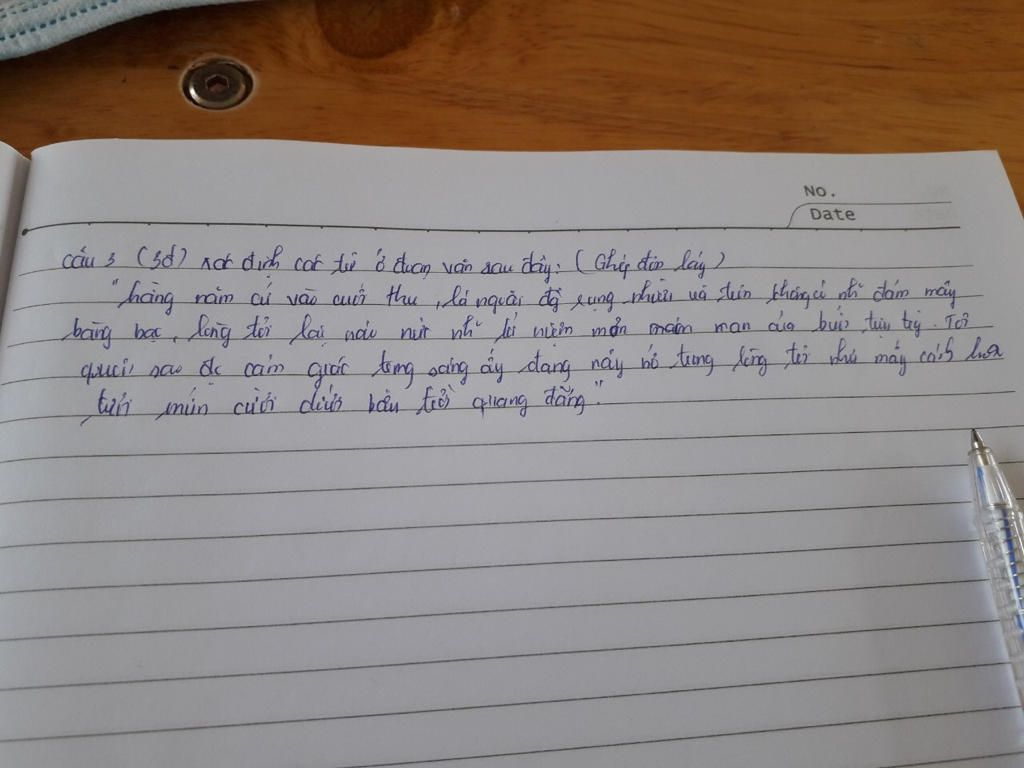 No.
Date
câu 3 (3đ) xác định các từ ở đoạn văn sau đây: (Ghép đơn láy)
"hàng năm cứ vào cuối thu, lá ngoài đg rụng nhiều và trên không có nhữ đám mây
bàng bạc, lòng tôi lại náo nức nhữ kỉ niệm mơn man của buổi tựu trg. Tôi
quên sao đc cảm giác trong sáng ấy đang nảy nở trong lòng tôi như mấy cánh hoa
tươi mỉm cười dưới bầu trời quang đãng."